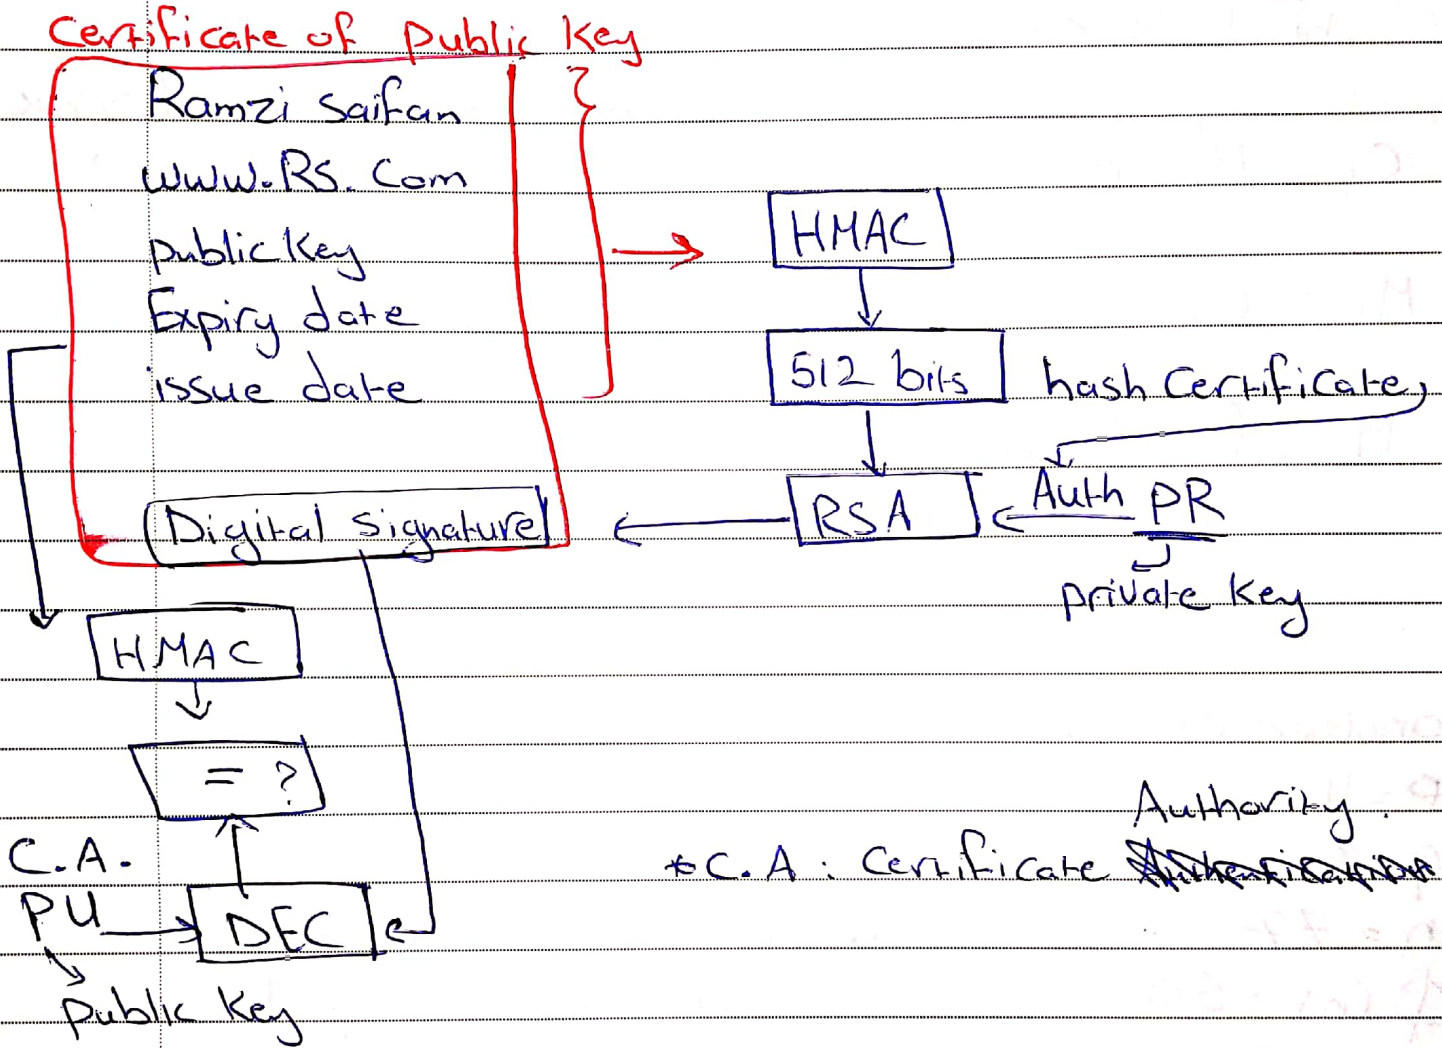 Certificate of Public Key
Ramzi Saifan
www.RS.Com
public Key
Expiry date
issue date
Digital Signature
HMAC
512 bits
hash Certificate,
RSA
Auth PR
private Key
HMAC
= ?
C.A.
PU
DEC
Public Key
Authority.
*C.A : Certificate